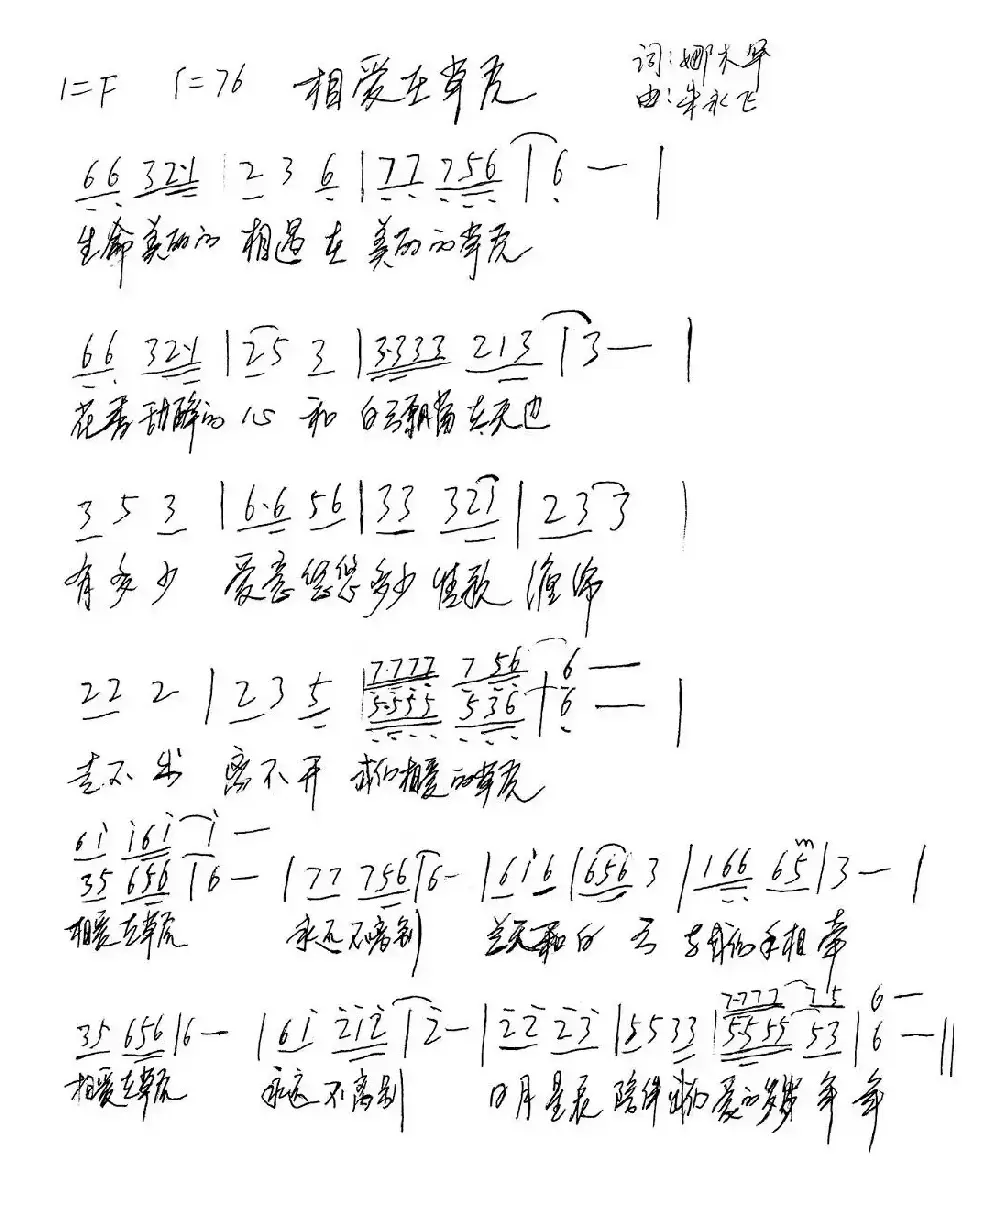 1=F ♩=76 相爱在草原
词:娜木罕
曲:朱永飞
66 321 | 2 3 6 | 77 756 | 6 — |
生命美丽的 相遇 在 美丽的草原
66 321 | 25 3 | 3·333 213 | 3 — |
花香 的 心 和 白云 天边
3 5 3 | 6·6 56 | 33 321 | 23 3 |
有多少 爱意悠悠 多少情歌
7·777 756 | 6 —
22 2 | 2 3 5 | 5·555 536 | 6 — |
走不出 离不开 我们相爱的草原
6i i6i | i —
35 656 | 6 — | 77 756 | 6 - | 6i6 | 656 3 | 166 65 | 3 — |
相爱在草原 永远不离别 蓝天和白 云 与我们手相牵
7·777 75 6 —
35 656 | 6 — | 6i 2i2 | 2 — | 22 23 | 55 33 | 5555 53 | 6 — ||
相爱在草原 永远不离别 日月星辰 陪伴我们 爱的岁岁年年